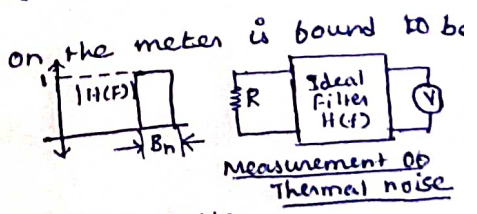 on the meter is bound to be
1
|H(F)|
Bn
R
Ideal
Filter
H(f)
V
Measurement of
Thermal noise